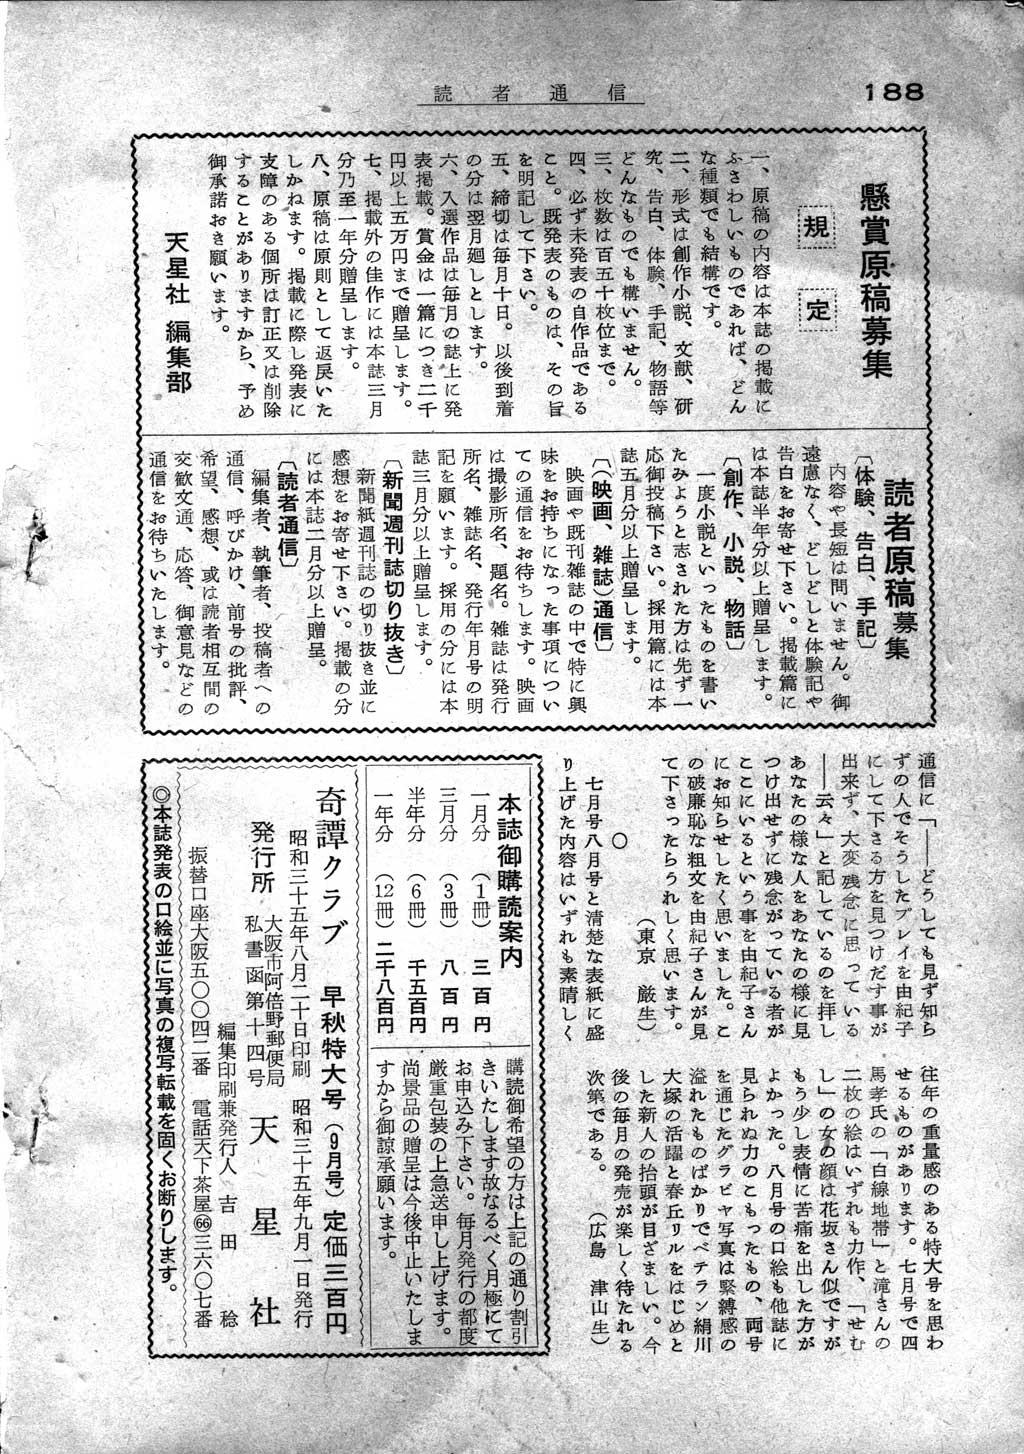 読者通信
188
懸賞原稿募集
規定
一、原稿の内容は本誌の掲載に
ふさわしいものであれば、どん
な種類でも結構です。
二、形式は創作小説、文献、研
究、告白、体験、手記、物語等
どんなものでも構いません。
三、枚数は百五十枚位まで。
四、必ず未発表の自作品である
こと。既発表のものは、その旨
を明記して下さい。
五、締切は毎月十日。以後到着
の分は翌月廻しとします。
六、入選作品は毎月の誌上に発
表掲載。賞金は一篇につき二千
円以上五万円まで贈呈します。
七、掲載外の佳作には本誌三月
分乃至一年分贈呈します。
八、原稿は原則として返戻いた
しかねます。掲載に際し発表に
支障のある個所は訂正又は削除
することがありますから、予め
御承諾おき願います。
天星社 編集部
読者原稿募集
〔体験、告白、手記〕
内容や長短は問いません。御
遠慮なく、どしどしと体験記や
告白をお寄せ下さい。掲載篇に
は本誌半年分以上贈呈します。
〔創作、小説、物話〕
一度小説といったものを書い
たみようと志された方は先ず一
応御投稿下さい。採用篇には本
誌五月分以上贈呈します。
〔(映画、雑誌)通信〕
映画や既刊雑誌の中で特に興
味をお持ちになった事項につい
ての通信をお待ちします。映画
は撮影所名、題名。雑誌は発行
所名、雑誌名、発行年月号の明
記を願います。採用の分には本
誌三月分以上贈呈します。
〔新聞週刊誌切り抜き〕
新聞紙週刊誌の切り抜き並に
感想をお寄せ下さい。掲載の分
には本誌二月分以上贈呈。
〔読者通信〕
編集者、執筆者、投稿者への
通信、呼びかけ、前号の批評、
希望、感想、或は読者相互間の
交歓文通、応答、御意見などの
通信をお待ちいたします。
通信に「――どうしても見ず知ら
ずの人でそうしたプレイを由紀子
にして下さる方を見つけだす事が
出来ず、大変残念に思っている
――云々」と記しているのを拝し
あなたの様な人をあなたの様に見
つけ出せずに残念がっている者が
ここにいるという事を由紀子さん
にお知らせしたく思いました。こ
の破廉恥な粗文を由紀子さんが見
て下さったらうれしく思います。
(東京 厳生)
○
七月号八月号と清楚な表紙に盛
り上げた内容はいずれも素晴しく
往年の重量感のある特大号を思わ
せるものがあります。七月号で四
馬孝氏の「白線地帯」と滝さんの
二枚の絵はいずれも力作、「せむ
し」の女の顔は花坂さん似ですが
もう少し表情に苦痛を出した方が
よかった。八月号の口絵も他誌に
見られぬ力のこもったもの、両号
を通じたグラビヤ写真は緊縛感の
溢れたものばかりでベテラン絹川
大塚の活躍と春丘リルをはじめと
した新人の抬頭が目ざましい。今
後の毎月の発売が楽しく待たれる
次第である。 (広島 津山生)
本誌御購読案内
一月分 (1冊) 三百円
三月分 (3冊) 八百円
半年分 (6冊) 千五百円
一年分 (12冊) 二千八百円
購読御希望の方は上記の通り割引
きいたします故なるべく月極にて
お申込み下さい。毎月発行の都度
厳重包装の上急送申し上げます。
尚景品の贈呈は今後中止いたしま
すから御諒承願います。
奇譚クラブ 早秋特大号(9月号)定価三百円
昭和三十五年八月二十日印刷 昭和三十五年九月一日発行
発行所 大阪市阿倍野郵便局
私書函第十四号 天星社
編集印刷兼発行人 吉田稔
振替口座大阪五〇〇四二番 電話天下茶屋㊅㊅三六〇七番
◎本誌発表の口絵並に写真の複写転載を固くお断りします。